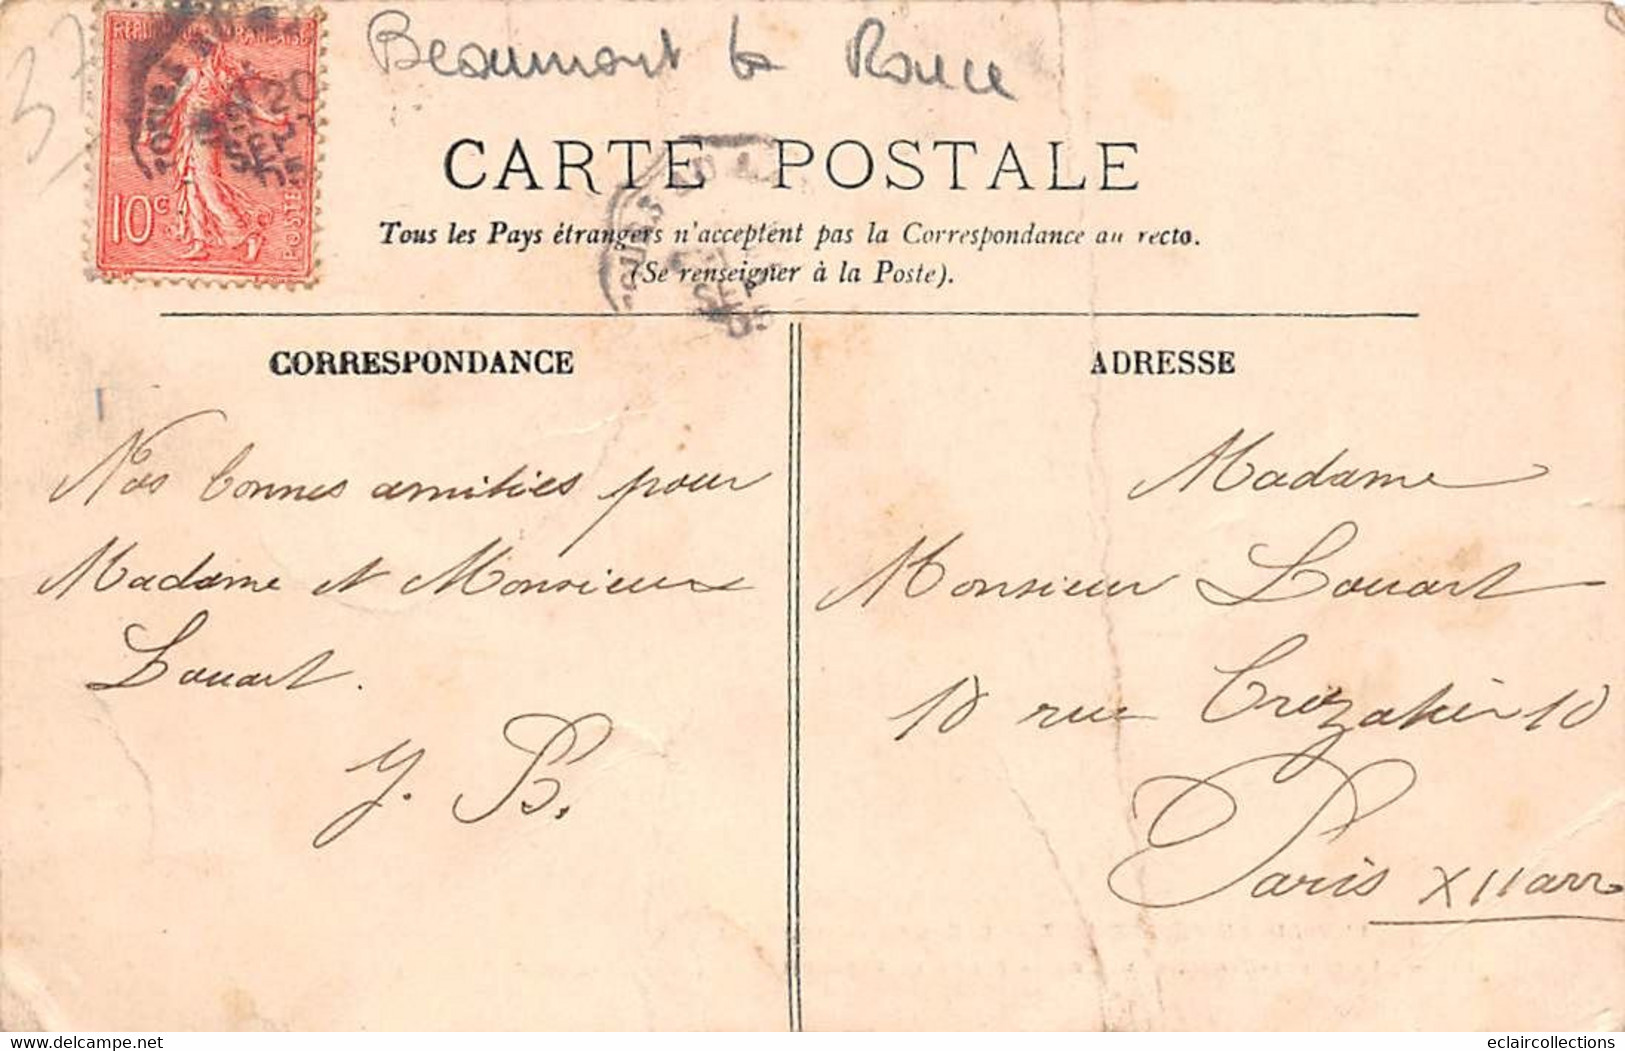 37
Beaumont la Ronce
RÉPUBLIQUE FRANÇAISE
10c
POSTES
CARTE POSTALE
Tous les Pays étrangers n'acceptent pas la Correspondance au recto.
(Se renseigner à la Poste).
CORRESPONDANCE
Nos bonnes amitiés pour
Madame et Monsieur
Louart.
Y. B.
ADRESSE
Madame
Monsieur Louart
10 rue Crozatier 10
Paris XII arr
eclaircollections